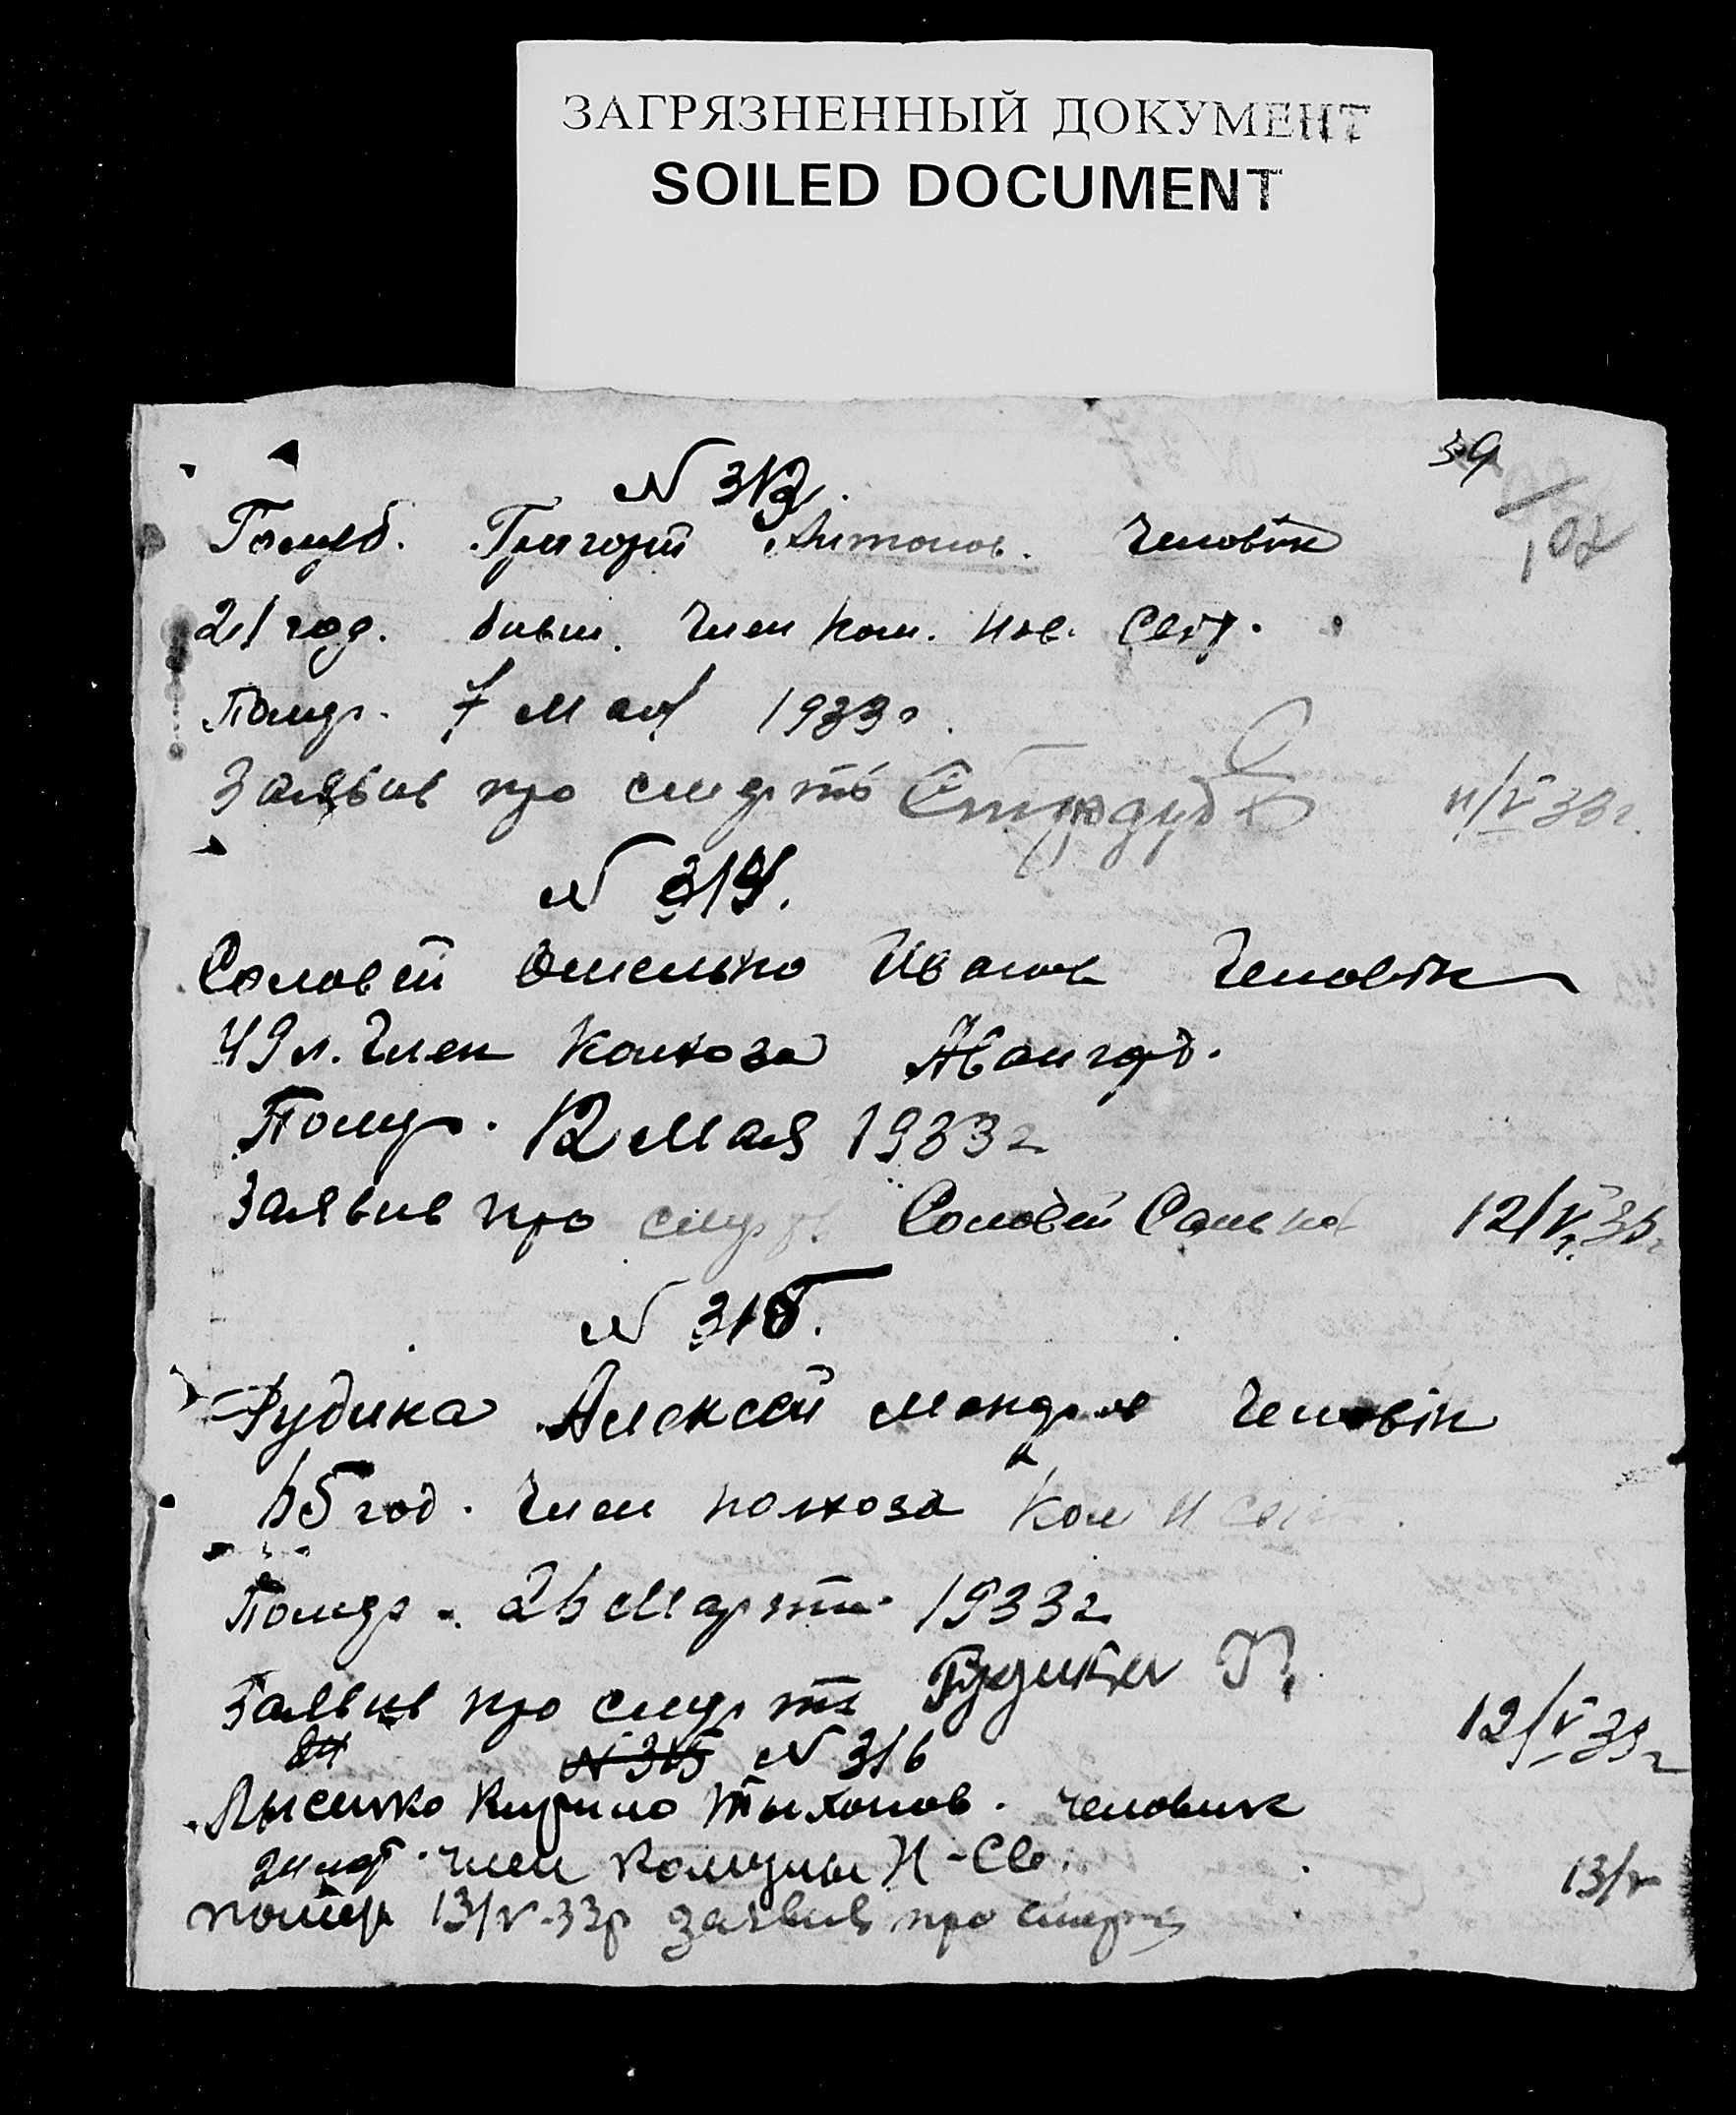 ЗАГРЯЗНЕННЫЙ ДОКУМЕНТ
SOILED DOCUMENT
39
102
N 313.
Голуб. Григорій Антонов. Человік
21 год. бывш. Член Ком. Нов. Світ.
Помер. 7 Мая 1933 г.
Заявив про смерть 11/V 33 г.
N 314.
Соловей Омелько Иванов Человік
49 л. Член Колхоза Авангард.
Помер. 12 Мая 1933 г
Заявив про смерть Соловей Санька 12/V 33 г
N 315.
Рудика Алексей Человік
65 год. Член колхоза Ком Н Світ
Помер. 26 Марта 1933 г
Заявив про смерть Рудика П. 12/V 33 г
24 N 315 N 316
Лысенко Кирило Тыхонов. человик
24 лет. член Комуны Н-Св.
помер 13/V-33р заявив про смерть 13/V